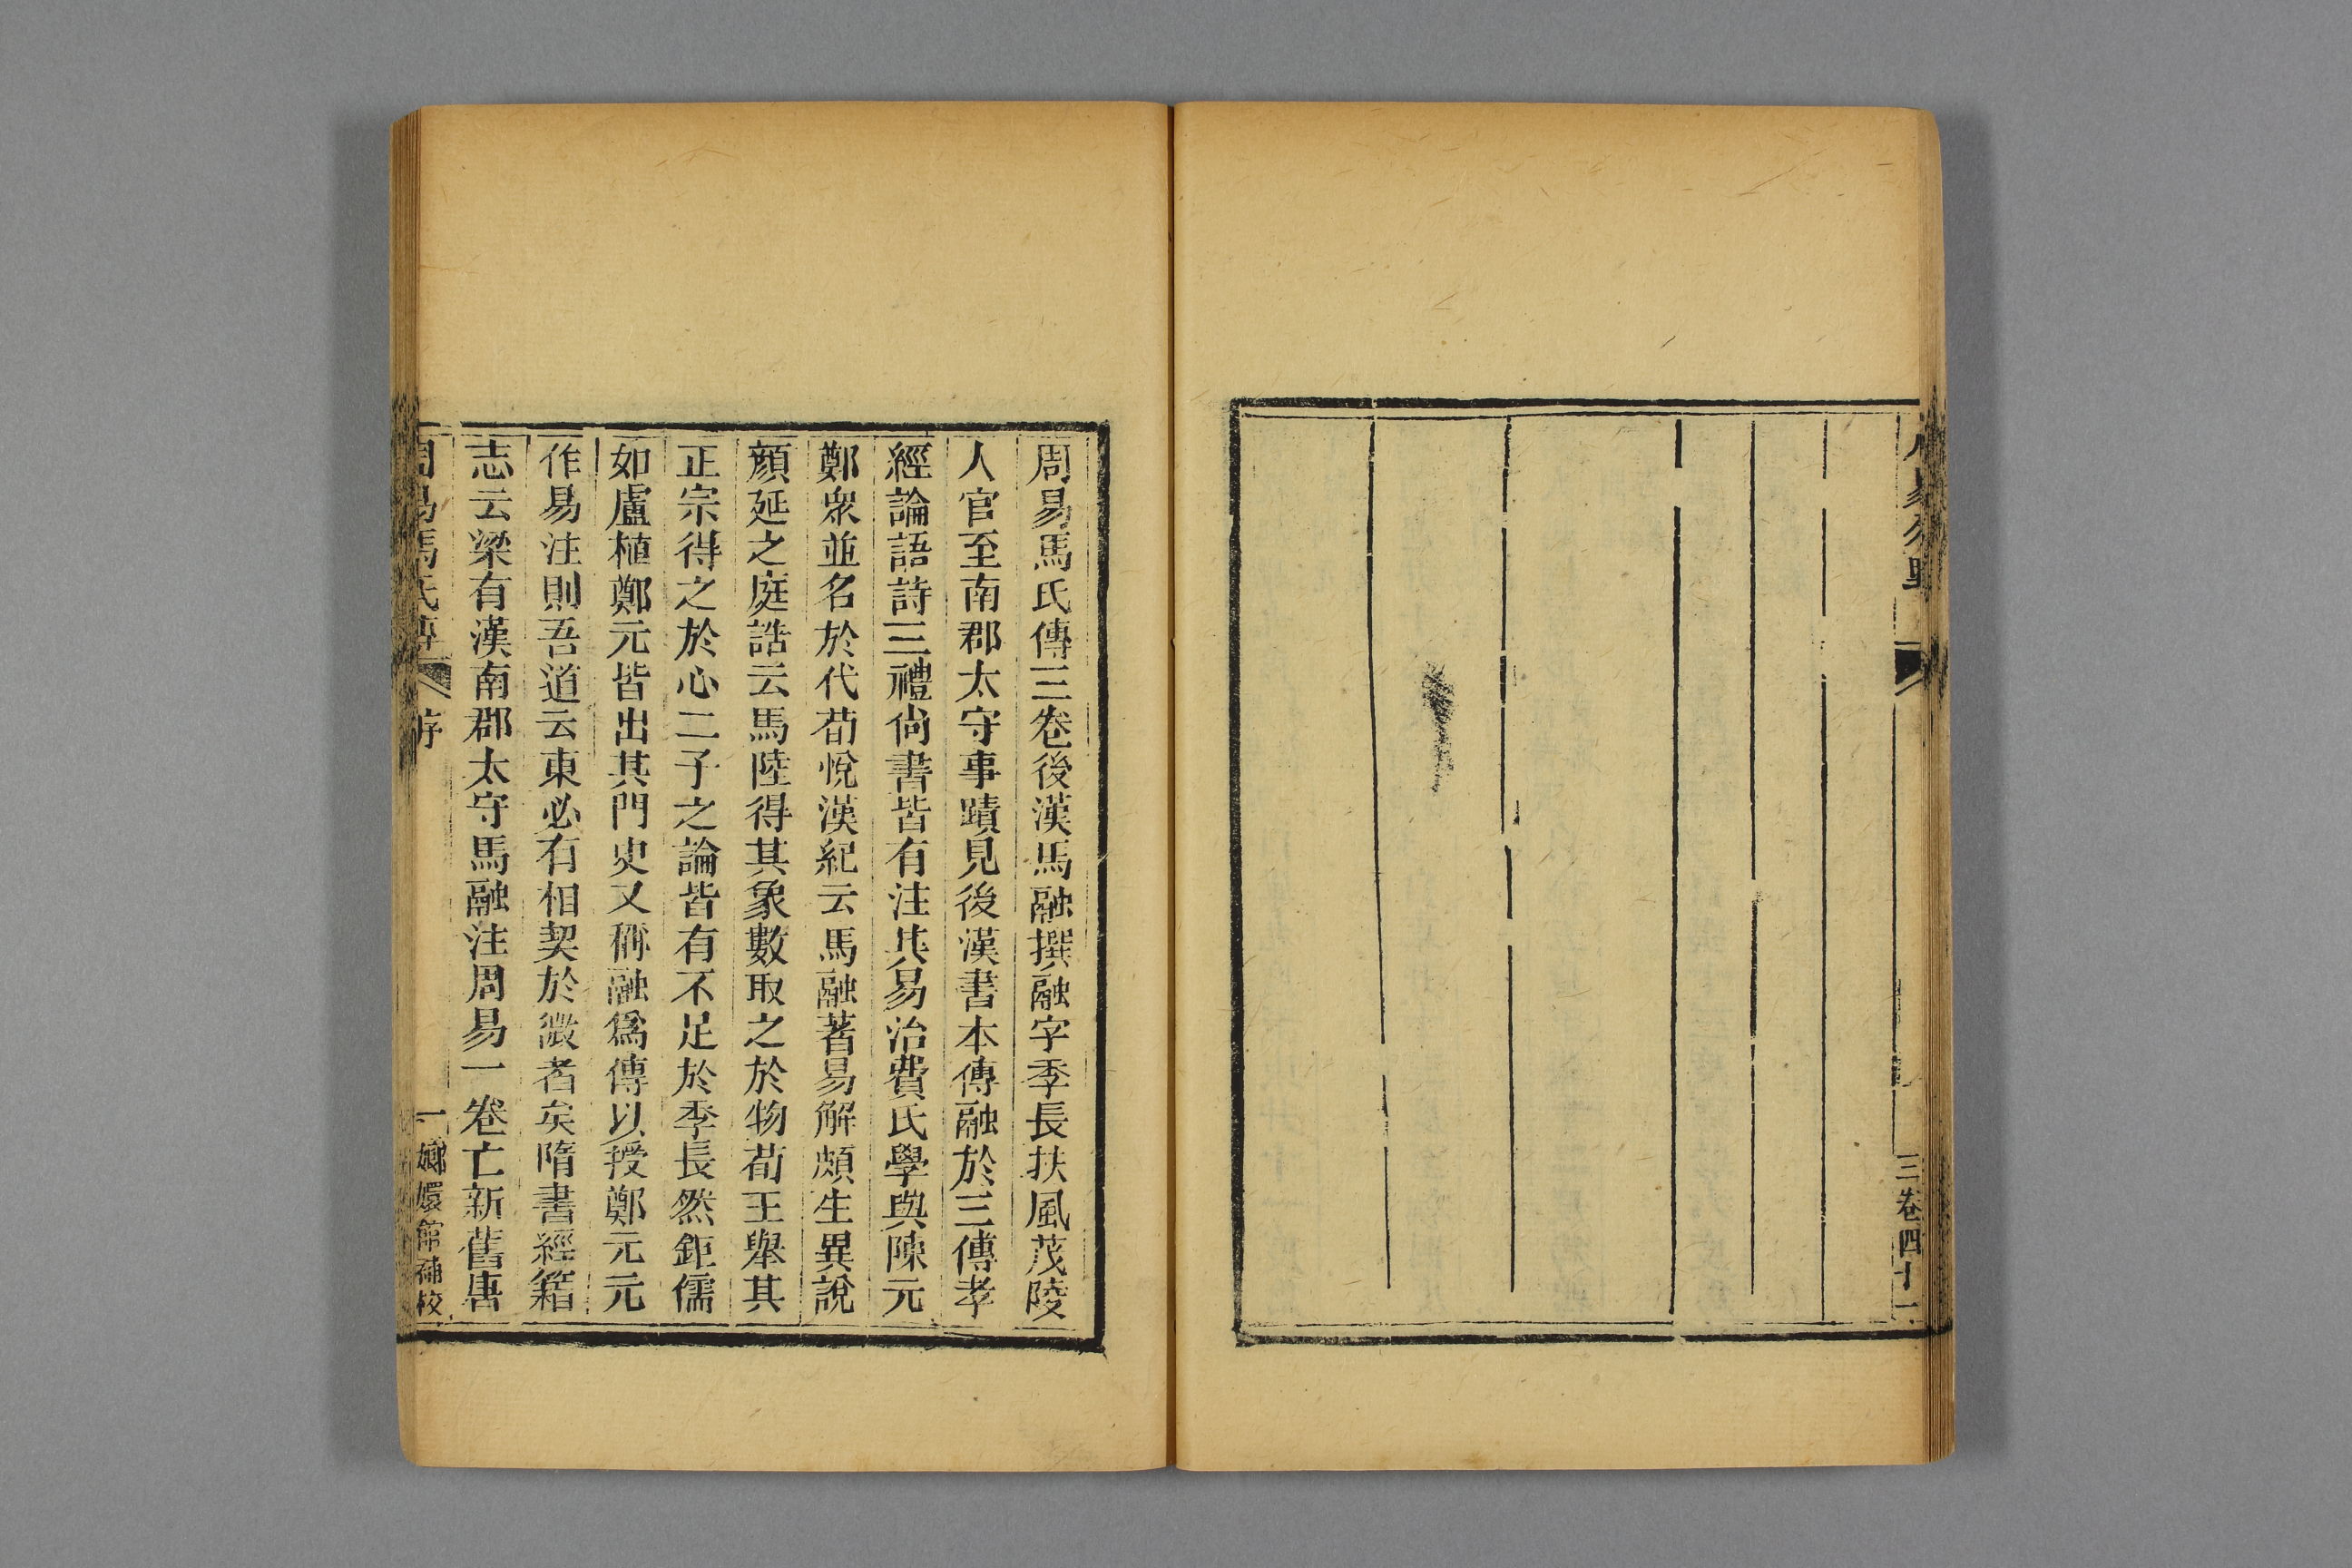 三卷四十一
周易馬氏傳三卷後漢馬融撰融字季長扶風茂陵
人官至南郡太守事蹟見後漢書本傳融於三傳孝
經論語詩三禮尙書皆有注其易治費氏學與陳元
鄭衆並名於代荀悅漢紀云馬融著易解頗生異說
顏延之庭誥云馬陸得其象數取之於物荀王舉其
正宗得之於心二子之論皆有不足於季長然鉅儒
如盧植鄭元皆出其門史又稱融爲傳以授鄭元元
作易注則吾道云東必有相契於微者矣隋書經籍
志云梁有漢南郡太守馬融注周易一卷亡新舊唐
周易馬氏傳 序 一 嫏嬛館補校